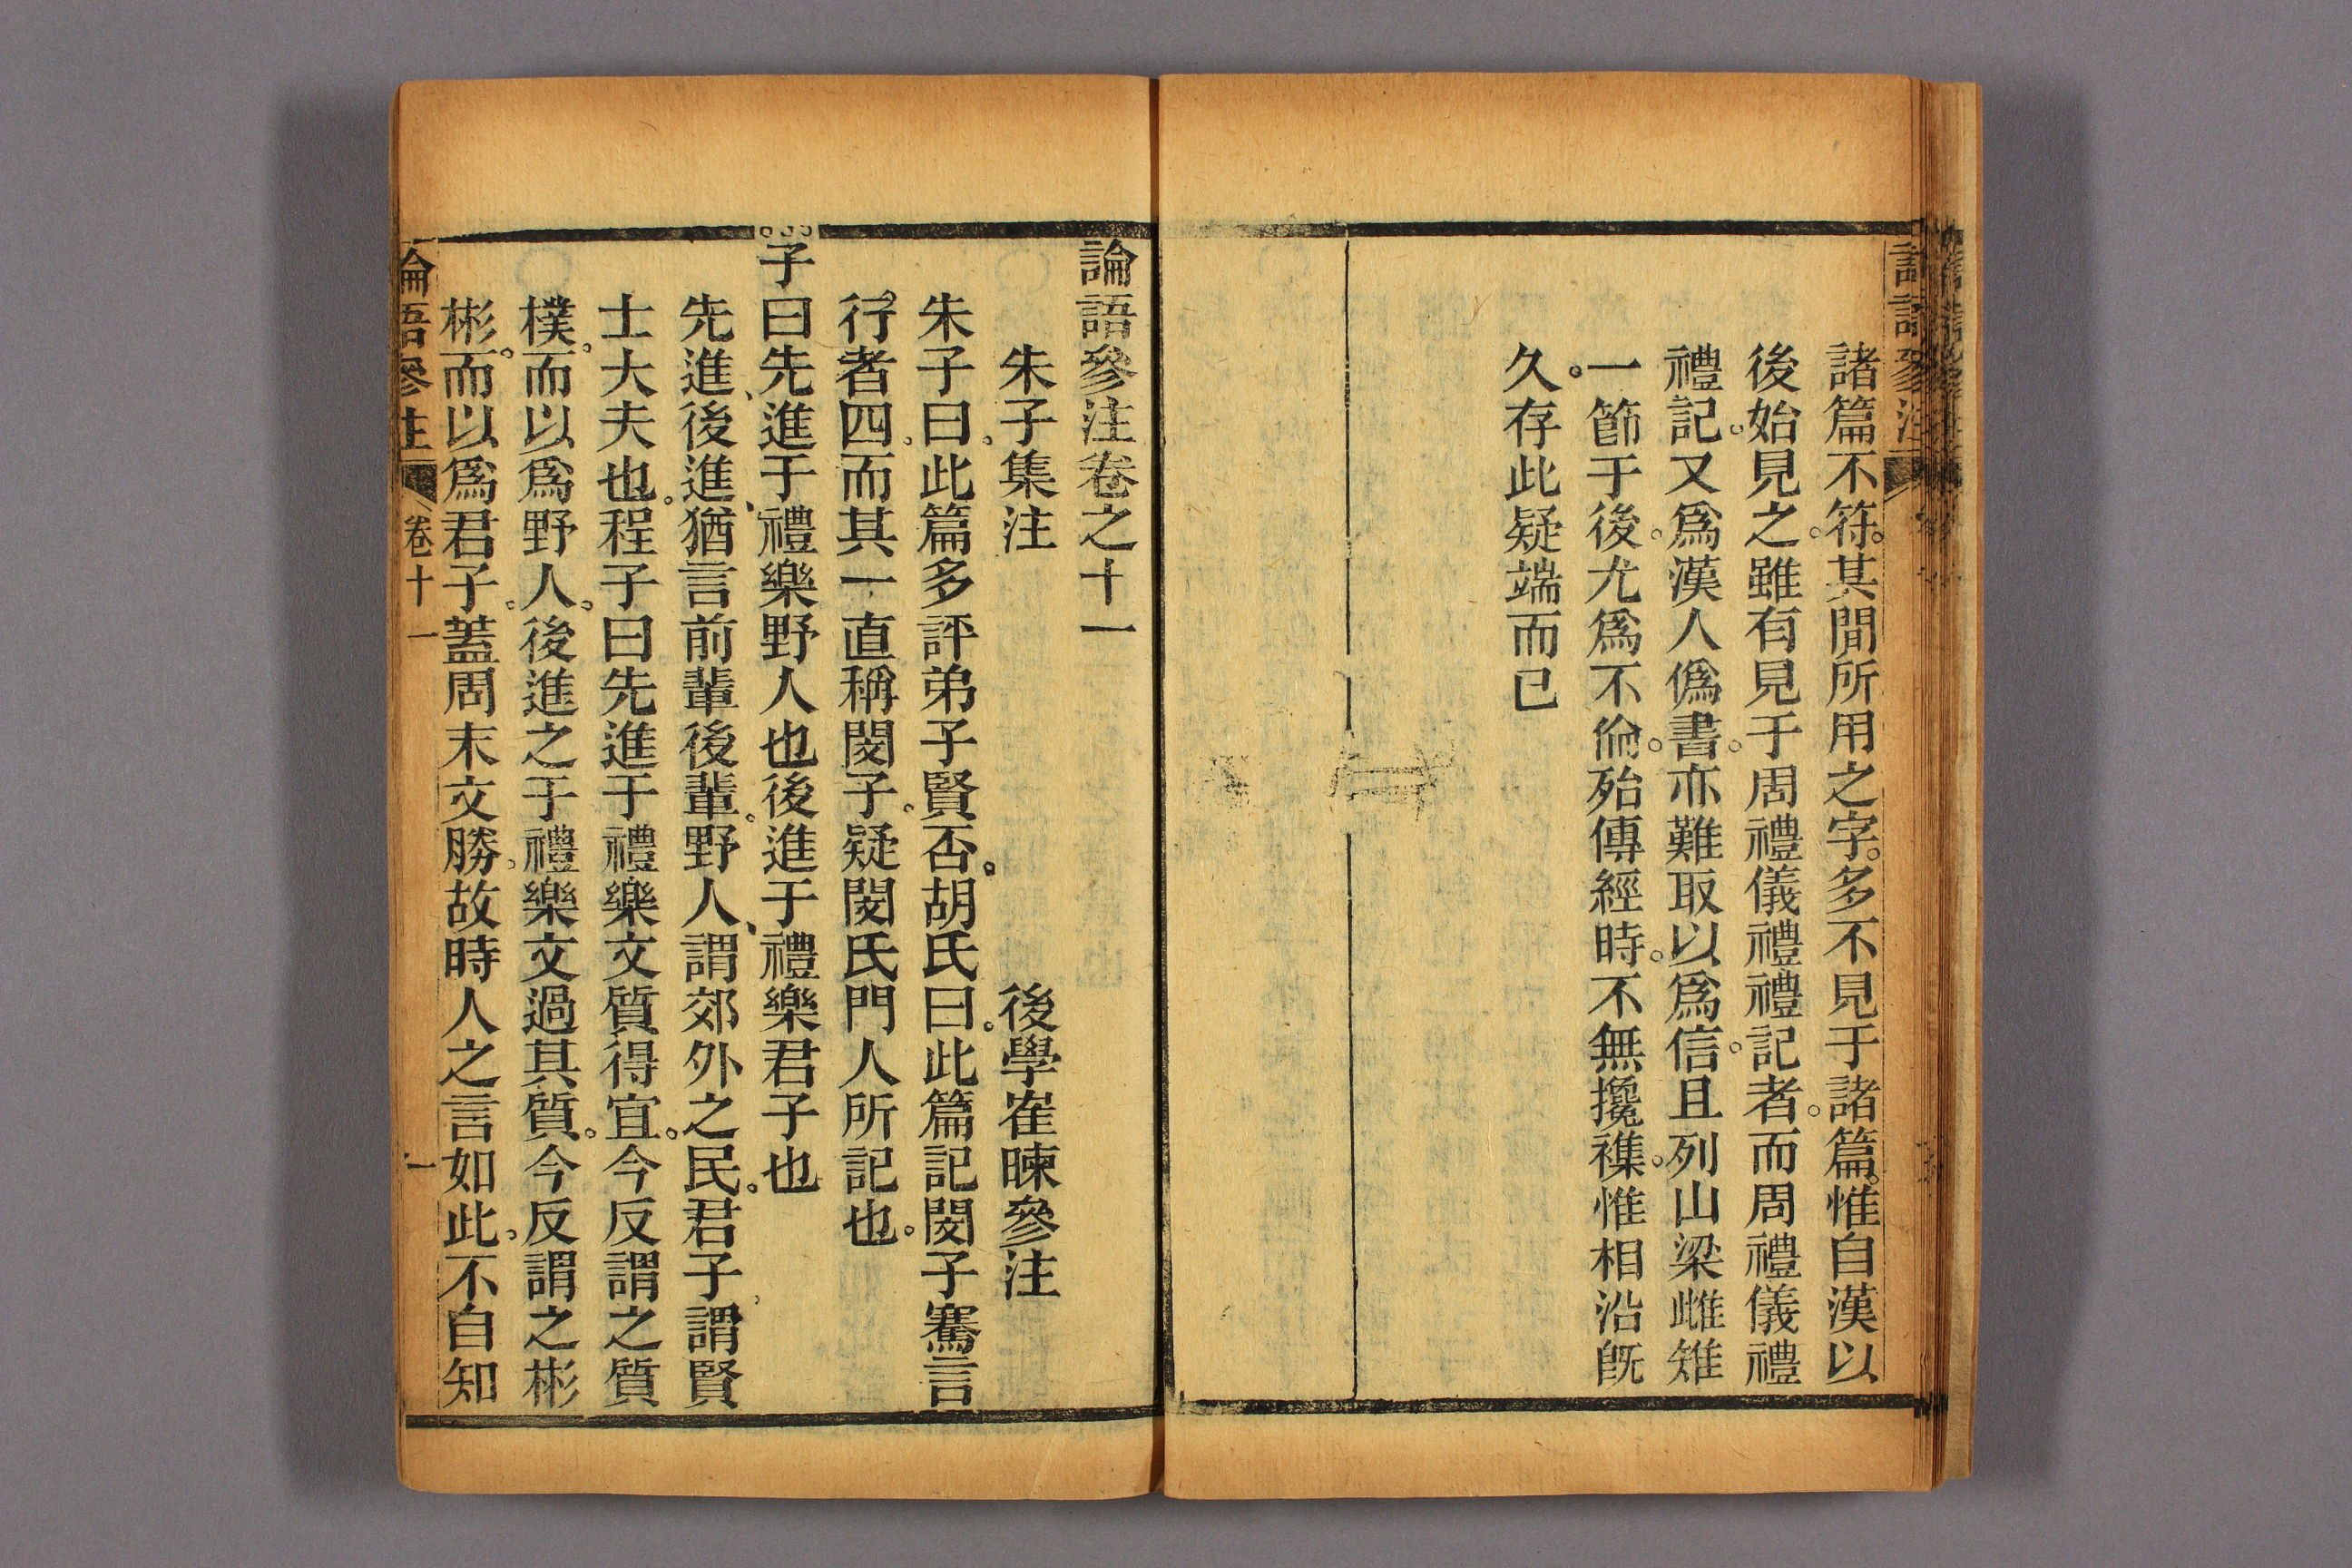 諸篇不符。其間所用之字。多不見于諸篇。惟自漢以
後始見之。雖有見于周禮儀禮禮記者。而周禮儀禮
禮記。又爲漢人僞書。亦難取以爲信。且列山梁雌雉
一節于後。尤爲不倫。殆傳經時。不無攙襍。惟相沿旣
久。存此疑端而已
論語參注卷之十一
朱子集注 後學崔暕參注
朱子曰。此篇多評弟子賢否。胡氏曰。此篇記閔子騫言
行者四。而其一直稱閔子。疑閔氏門人所記也。
子曰先進于禮樂野人也後進于禮樂君子也
先進、後進、猶言前輩後輩。野人、謂郊外之民。君子、謂賢
士大夫也。程子曰先進于禮樂文質得宜。今反謂之質
樸。而以爲野人。後進之于禮樂文過其質。今反謂之彬
彬。而以爲君子。蓋周末文勝。故時人之言如此。不自知
論語參注 卷十一 一